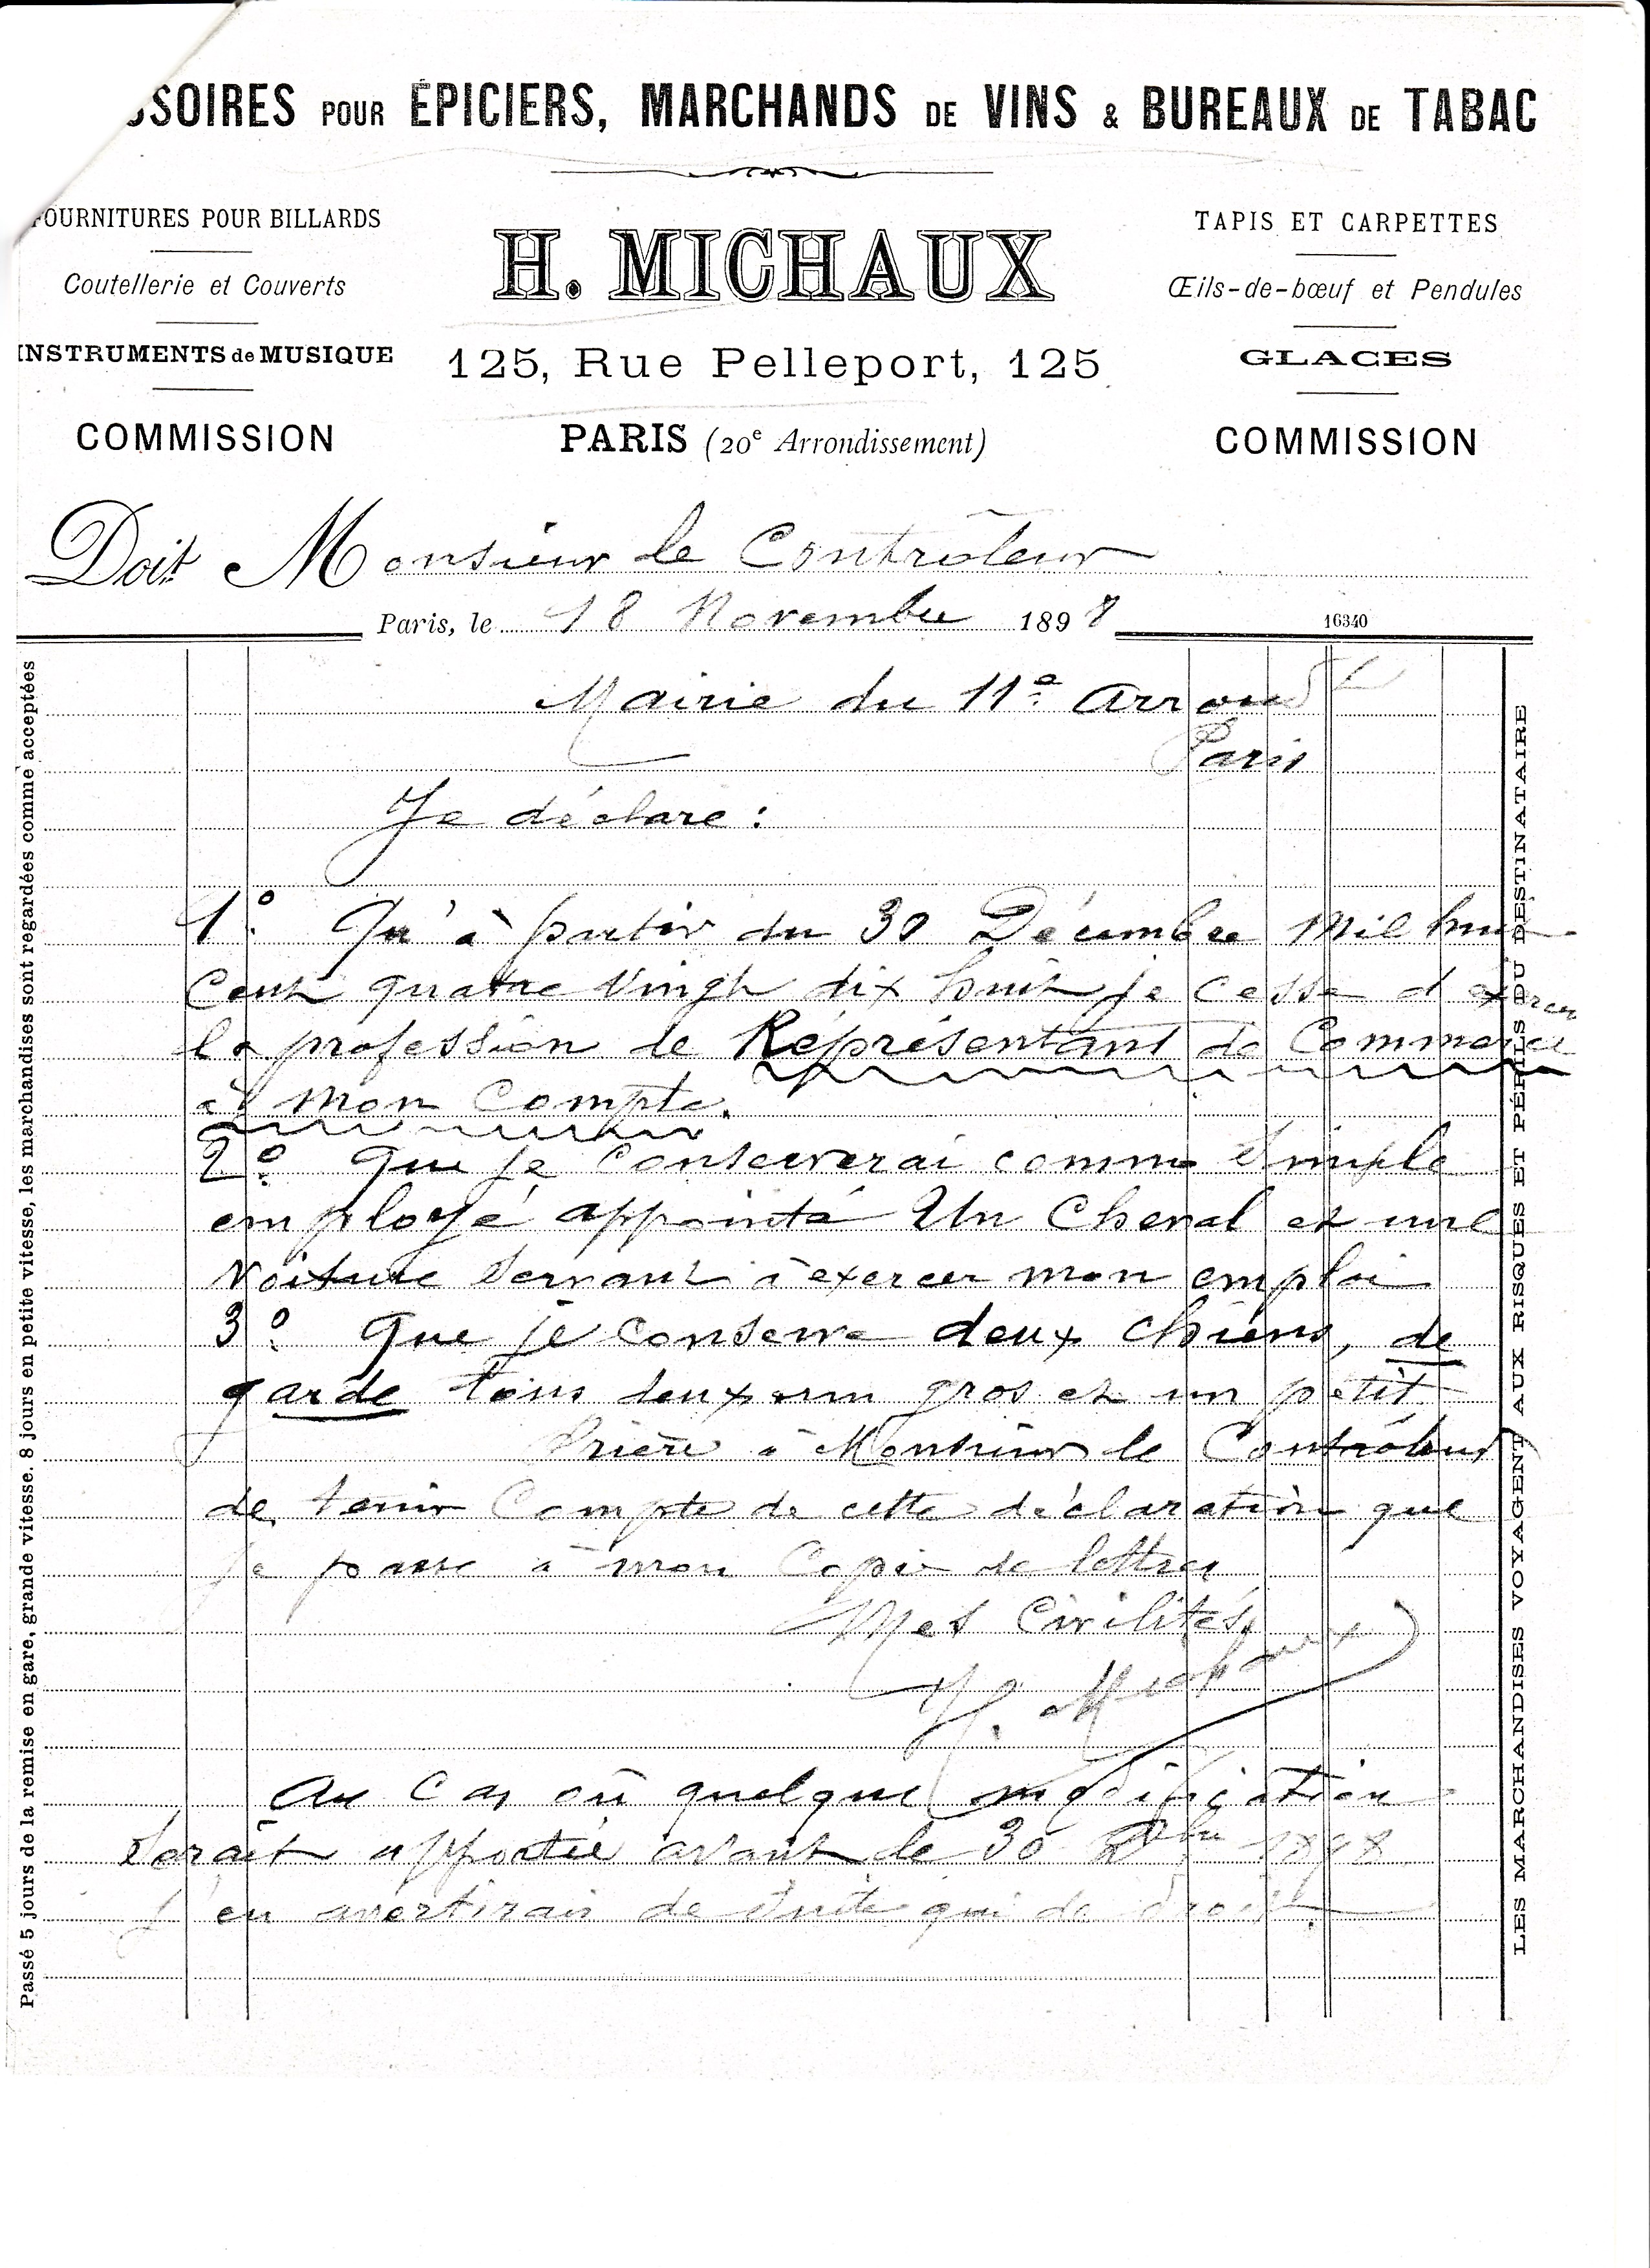 SSOIRES POUR ÉPICIERS, MARCHANDS DE VINS & BUREAUX DE TABAC
FOURNITURES POUR BILLARDS
Coutellerie et Couverts
INSTRUMENTS de MUSIQUE
COMMISSION
H. MICHAUX
125, Rue Pelleport, 125
PARIS (20e Arrondissement)
TAPIS ET CARPETTES
Œils-de-bœuf et Pendules
GLACES
COMMISSION
Doit Monsieur le Contrôleur
Paris, le 18 Novembre 1898
16340
Mairie du 11e Arrondt
Paris
Je déclare :
1° Qu'à partir du 30 Décembre Mil huit
Cent quatre Vingt dix huit je cesse d'exercer
la profession de Représentant de Commerce
à mon Compte.
2° que je conserverai comme simple
employé appointé Un Cheval et une
Voiture servant à exercer mon emploi
3° que je conserve deux chiens, de
garde tous deux un gros et un petit
Prière à Monsieur le Contrôleur
de tenir Compte de cette déclaration que
je passe à mon Copie de lettres
Mes Civilités,
H. Michaux
Au Cas où quelque modification
serait apportée avant le 30 Dbre 1898
j'en avertirais de suite qui de droit.
Passé 5 jours de la remise en gare, grande vitesse. 8 jours en petite vitesse, les marchandises sont regardées comme acceptées
LES MARCHANDISES VOYAGENT AUX RISQUES ET PÉRILS DU DESTINATAIRE